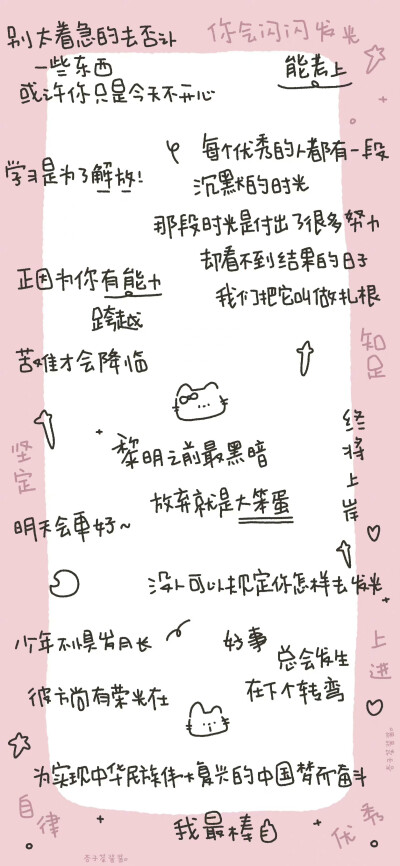 别太着急的去否认
一些东西
或许你只是今天不开心
你会闪闪发光
能考上
每个优秀的人都有一段
沉默的时光
那段时光是付出了很多努力
却看不到结果的日子
我们把它叫做扎根
学习是为了解放!
正因为你有能力
跨越
苦难才会降临
知足
坚定
黎明之前最黑暗
终将上岸
放弃就是大笨蛋
明天会更好~
没人可以规定你怎样去发光
少年不惧岁月长
彼方尚有荣光在
好事
总会发生
在下个转弯
上进
为实现中华民族伟大复兴的中国梦而奋斗
自律
我最棒
优秀